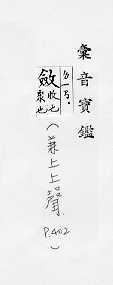 彙音寶鑑
勼一ㄎ.
斂 收也 聚也
(兼上上聲
P.402
)